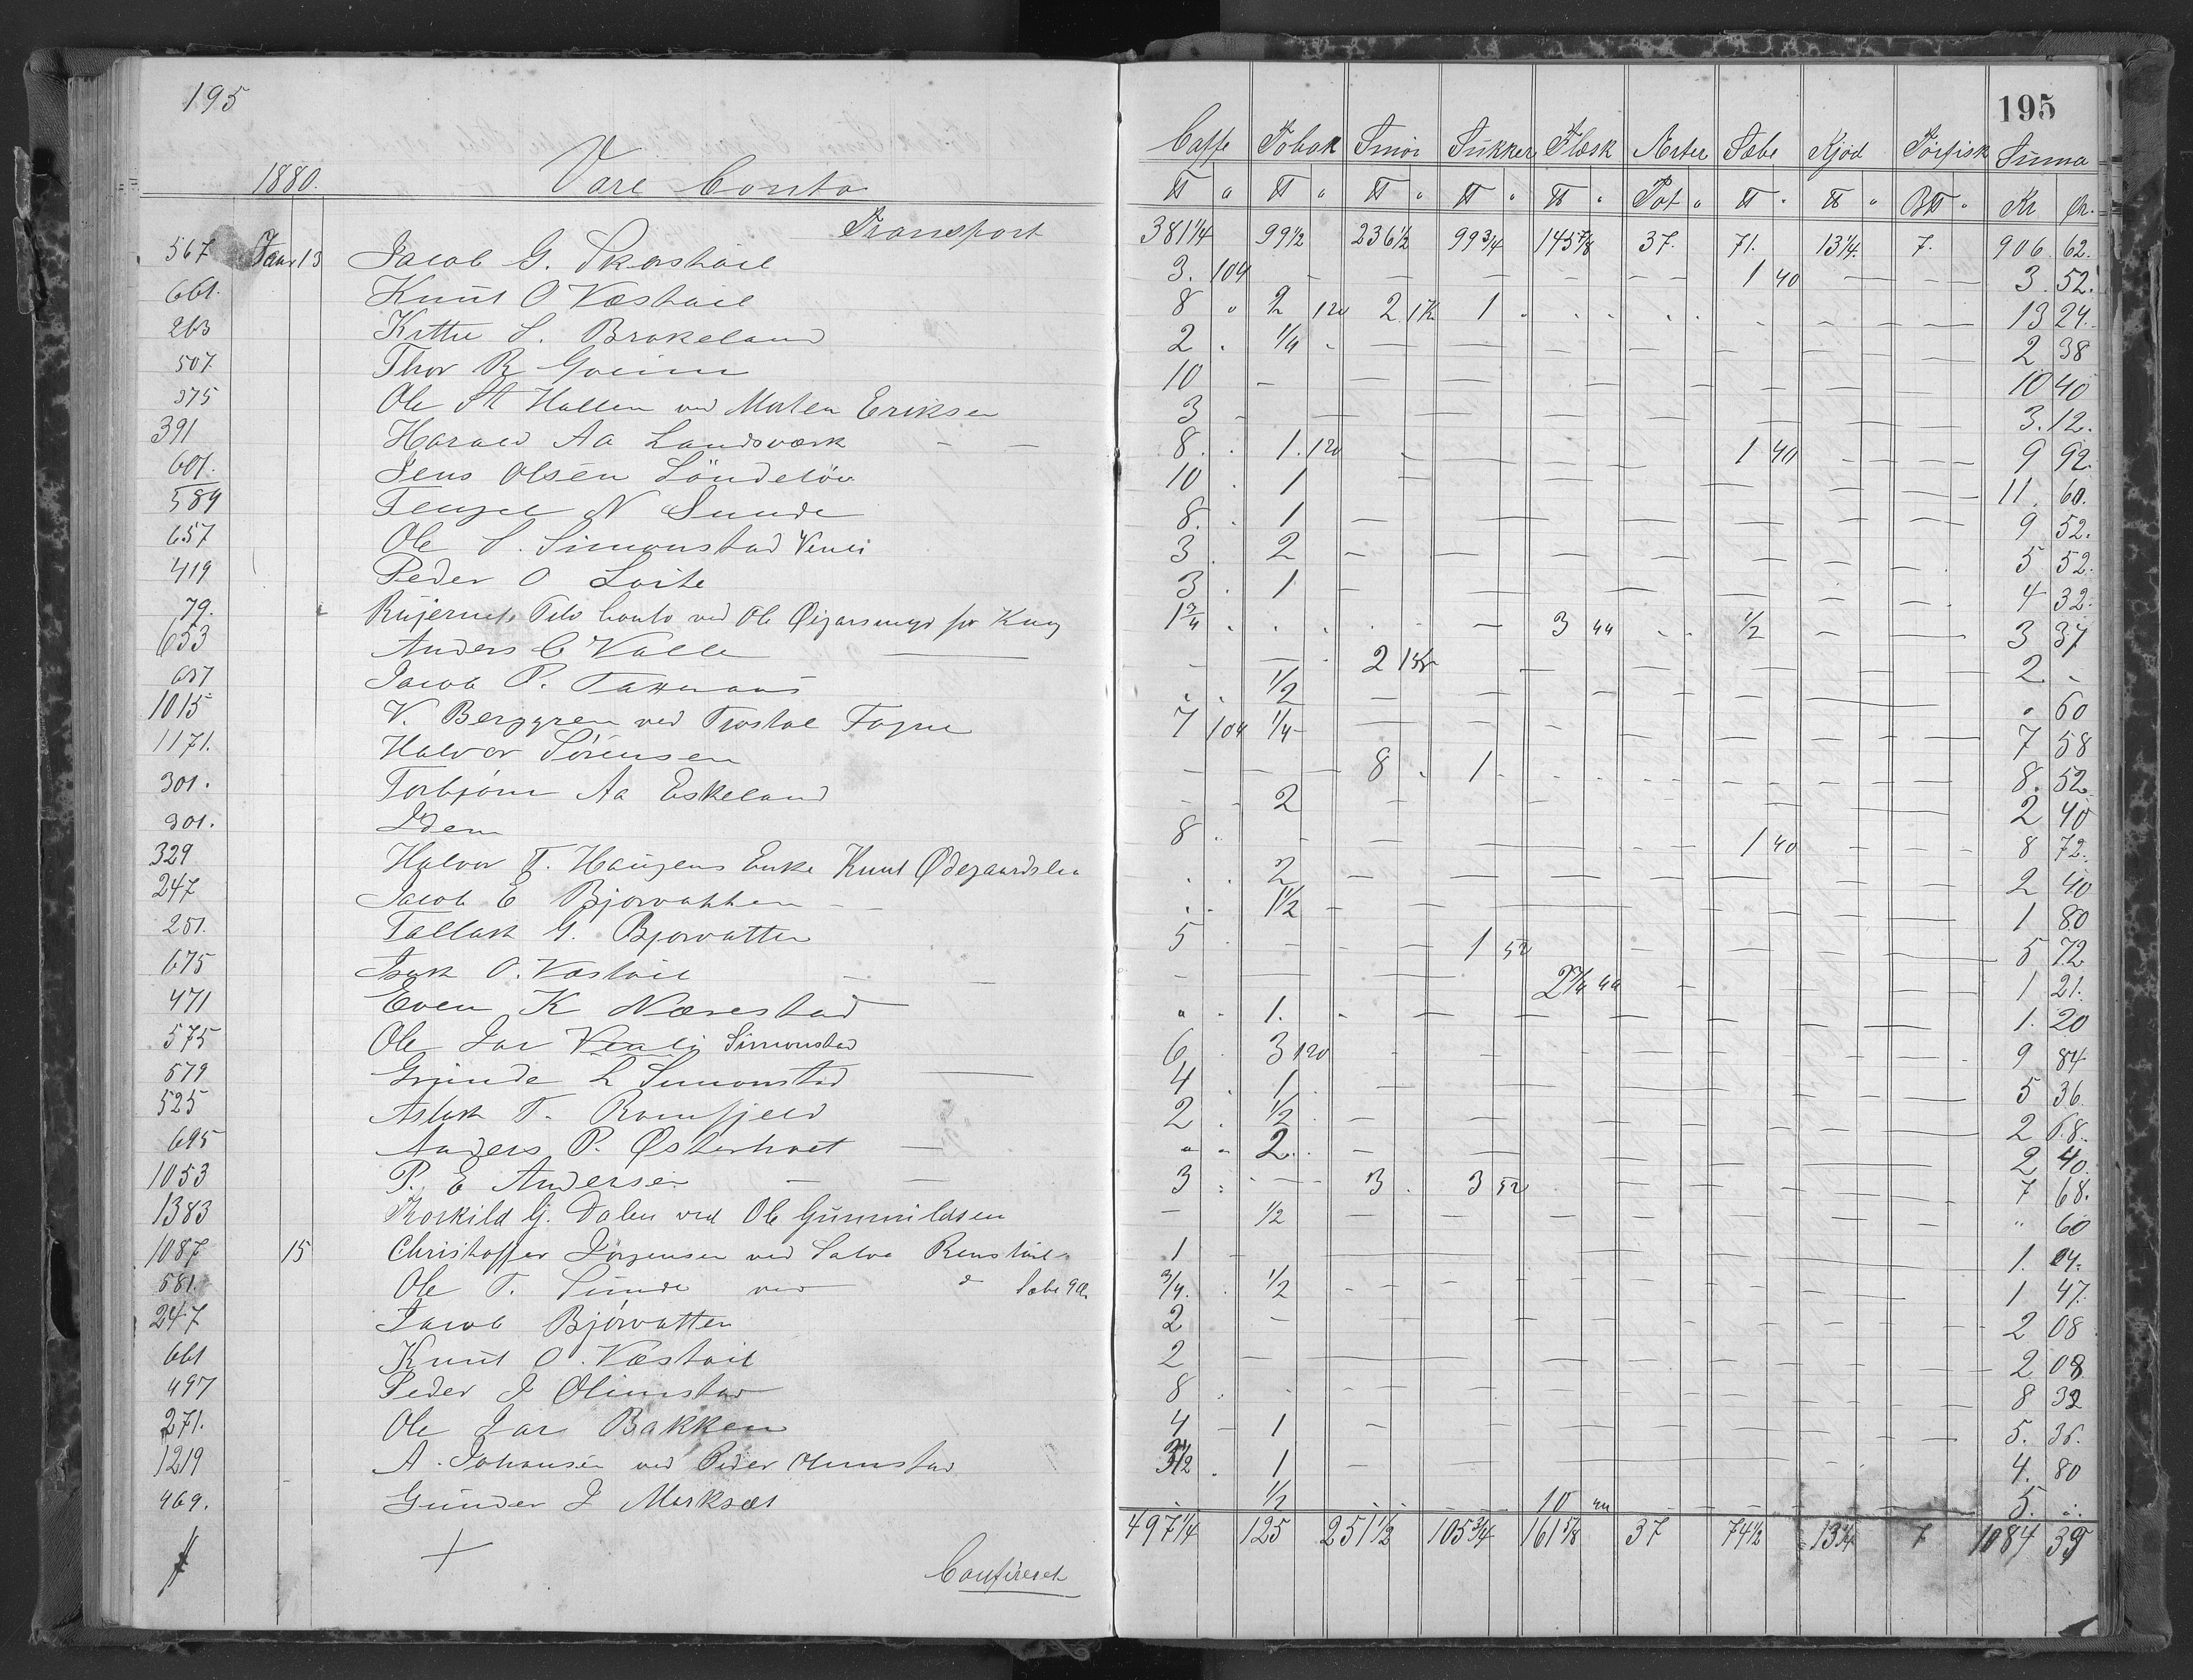 195
195
1880. Vare Conto
Caffe Tobak Smör Sukker Flæsk Arter Sæbe Kjöd Törfisk Suma
Pot Kr Ør.
Transport 381 1/4 99 1/2 236 1/2 99 3/4 145 7/8 37. 71. 13 1/4. 7. 906. 62.
567 Janr 13 Jacob G. 3. 104 1 40 3. 52.
661. Knut O Væstöil 8 2 120 2 1 K 1 13 24.
263 S. Brakeland 2 1/4 2 38
507. Thor R 10 10 40
375 Ole St Hallen ved Morten Eriksen 3 3. 12.
391 Harald Aa Landsværk 8. 1. 120 1 40 9 92.
601. Jens Olsen Löndelöv 10 1 11. 60.
589 N Sunde 8. 1 9 52.
657 Ole S. Simonstad Venli 3. 2 5 52.
419 Peder O Loite 3. 1 4 32.
79. Conto ved Ole 1 3/4 3 44 1/2 3 37
653 Anders C Valle 2 2 -
Jacob P. 1/2 60
1015 V. Berggren ved Fogne 7 104 1/4 7 58
1171. Halvor Sørensen 8 1 8. 52
301. Torbjörn Aa Eskeland 2 2 40
301. Idem 8 1 40 8 72.
329 Halvor T. Haugens Enke Knut Ødegaardslia 2 2 40
247 Jacob E Bjorvatten 1 1/2 1 80
251. Tallak G. Bjorvatten 5 1 52 5 72
675 Isak O. Væstöil 2 3/4 44 1 21.
471 Even K Nærestad 1. 1. 20
575 Ole Jar Venli Simonstad 6 3 120 9 84
579 Grunde L Simonstad 4 1 5 36.
525 Aslak T. Ramfjeld 2 1/2 2 68.
695 Anders P. Østerholt 2 2 40.
1053 P. E Andersen 3 3 3 52 7 68.
1383 Torkild G. Dalen ved Ole Gunnuldsen 1/2 60
1087 15 Christoffer Jörgensen ved Salve 1 1. 04.
581. Ole T. Sunde ved d Sæbe 9 Ø. 3/4. 1/2 1 47.
247 Jacob Bjorvatten 2 2 08
661 Knut O. Væstöil 2 2 08
497 Peder J Olimstad 8 8 32
271. Ole Jar Bakken 4 1 5. 36.
1219 A. Johansen ved Peder Olimstad 3 1/2 1 4. 80
469. Gunder J Marksæt 1/2 10 44 5.
497 1/4 125 251 1/2 105 3/4 161 5/8 37 74 1/2 13 1/4 7 1084 39
Confereret